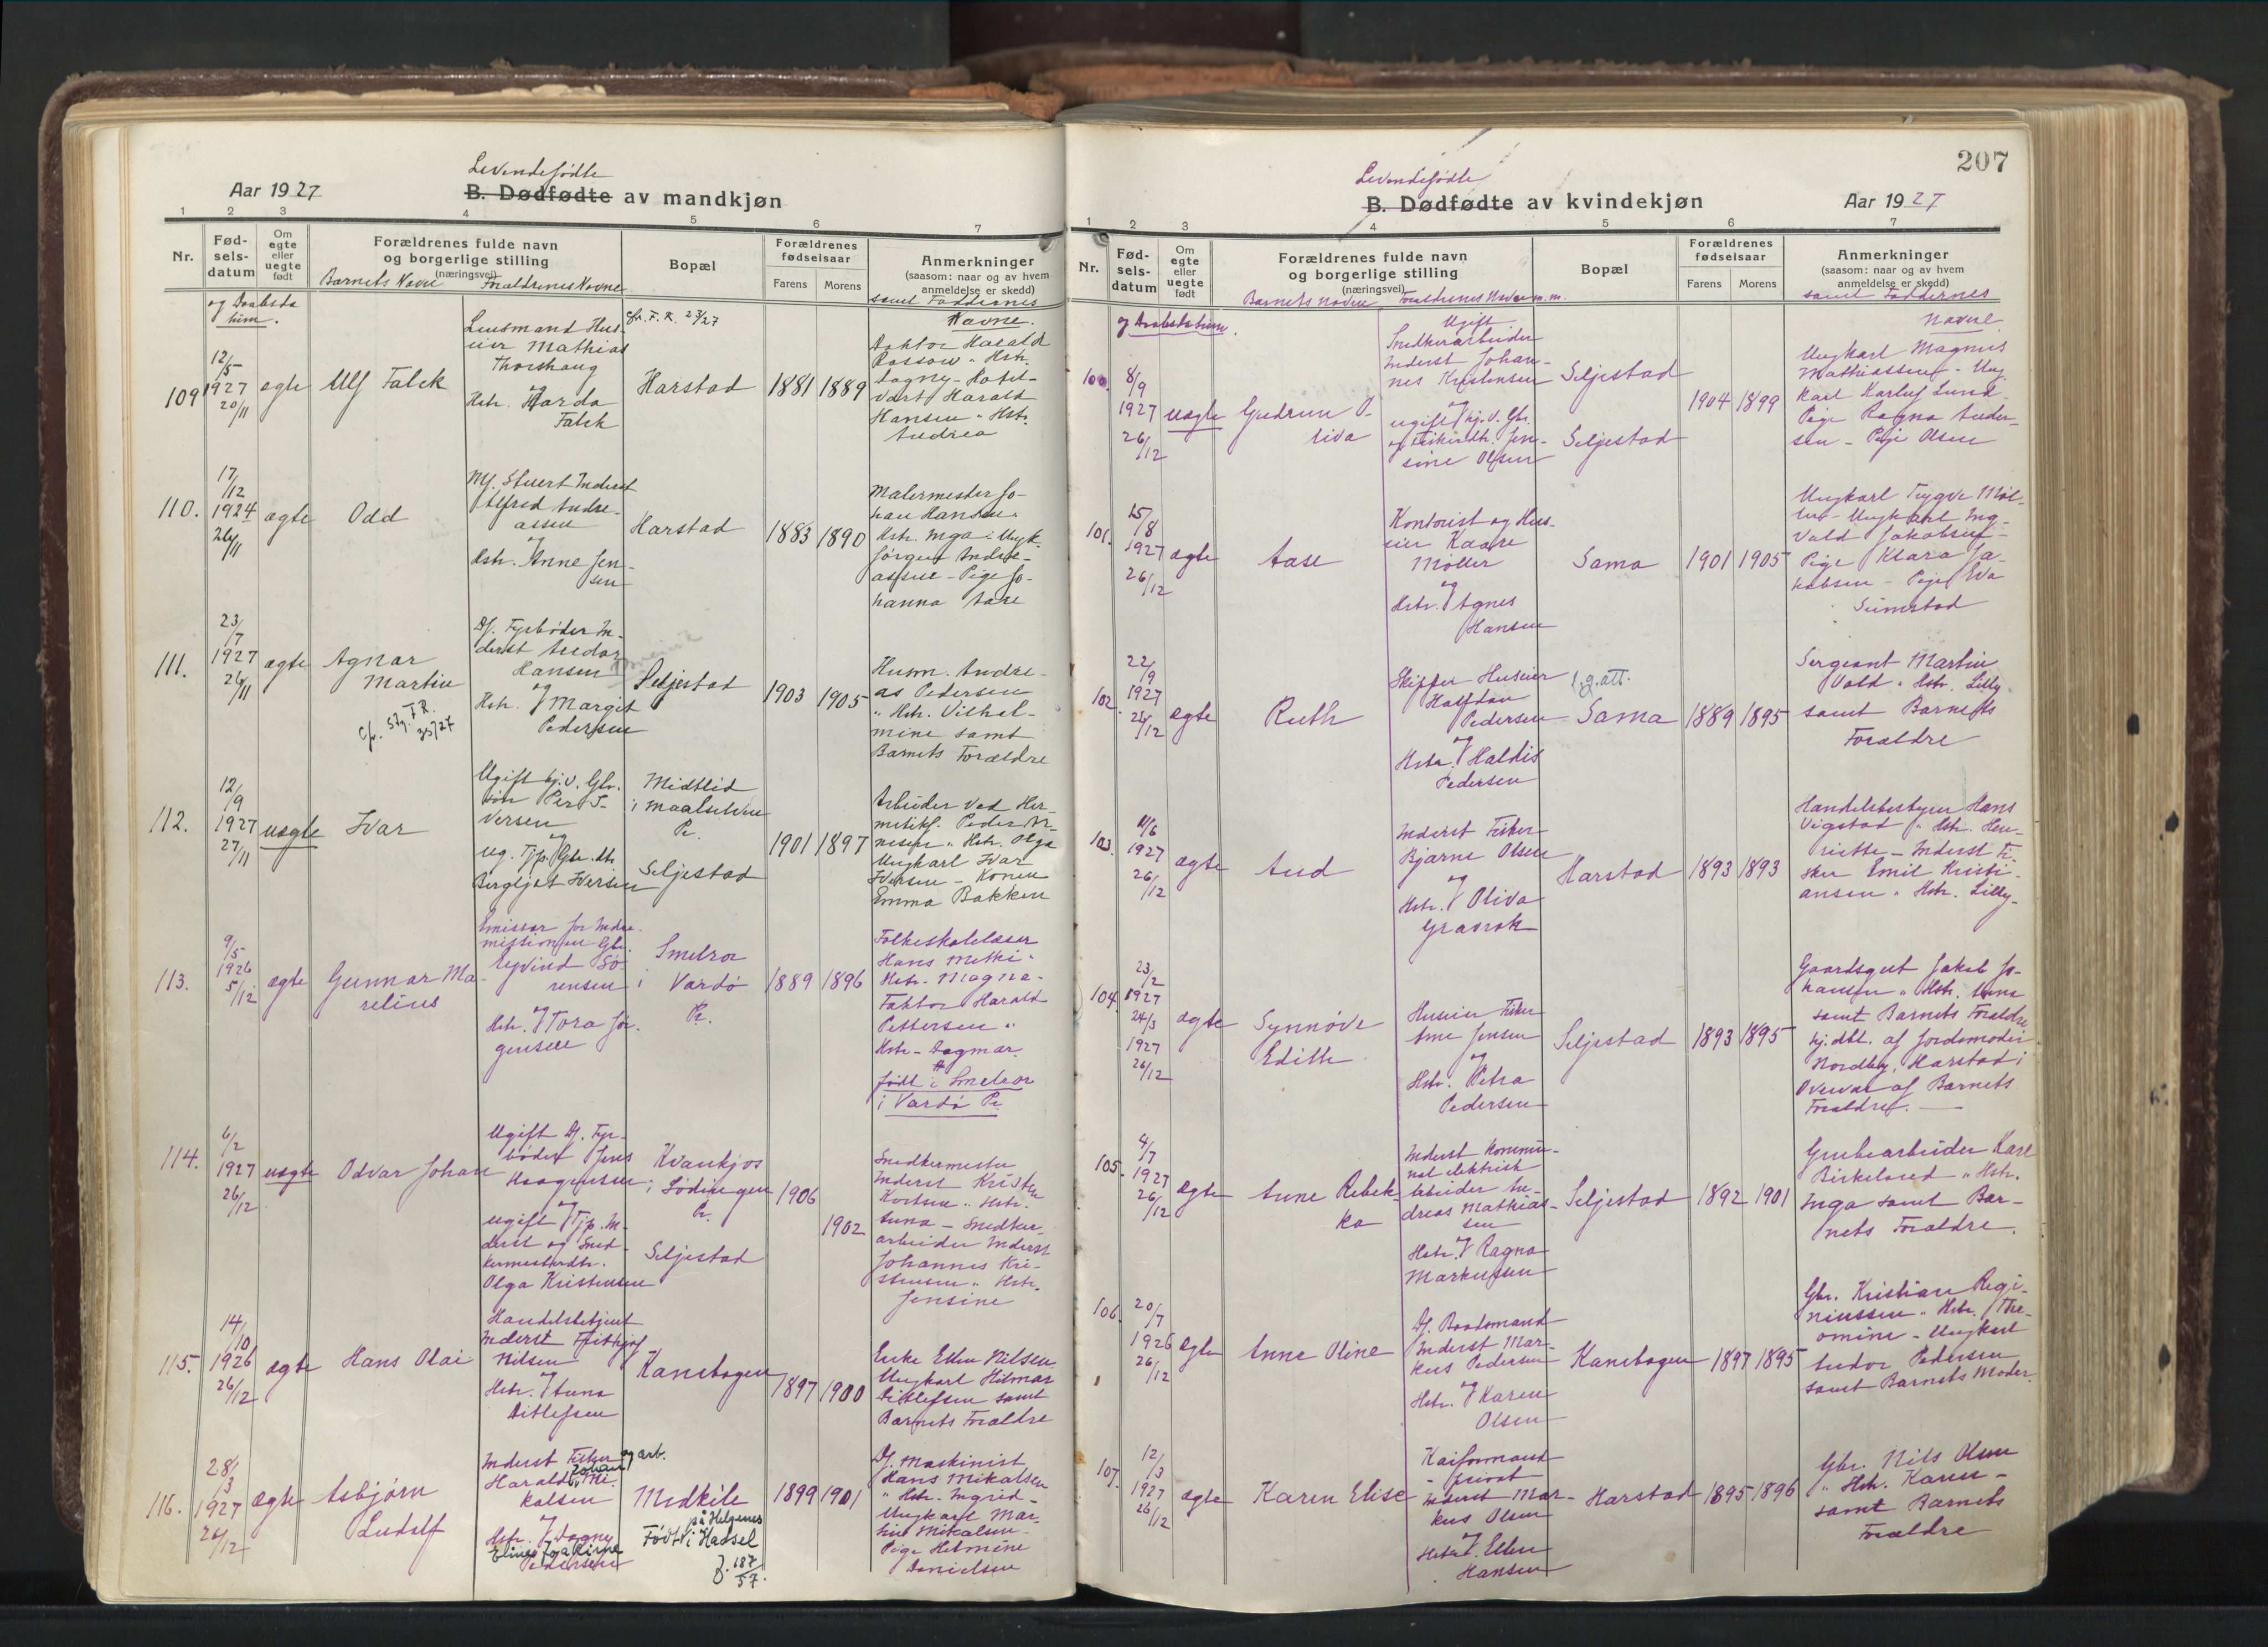 Levendefødte
Aar 1927
B. Dødfødte av mandkjøn
1 2 3 4 5 6 7
Nr.
Fød-
sels-
datum
Om
egte
eller
uegte
født
Forældrenes fulde navn
og borgerlige stilling
(næringsvei)
Barnets Navn Forældrenes Navne
Bopæl
Forældrenes
fødselsaar
Farens Morens
Anmerkninger
(saasom: naar og av hvem
anmeldelse er skedd)
samt Faddernes
Navne.
og Daabsda
tum.
109
12/5
1927
20/11
ægte
Ulf Falck
Lensmand Hus-
eier Mathias
Thorshaug
og
Hstr. Harda
Falck
cfr. F. R. 23/27
Harstad
1881 1889
Doktor Harald
Rossow " Hstr.
Dagny - Hotel-
vært Harald
Hansen " Hstr.
Andrea
110.
17/12
1924
24/11
ægte
Odd
Stuert Inderst
Alfred Andre-
assen
og
Hstr. Anne Jen-
sen
Harstad
1883 1890
Malermester Jo-
han Hansen "
Hstr. Inga - Ungk.
Jørgen Andre-
assen - Pige Jo-
hanna Aase
111.
23/7
1927
24/11
ægte
Agnar
Martin
cfr. Stg. F.R.
35/27
Df. Fyrbøder In-
derst Andor
Hansen
og
Hstr. Margit
Pedersen
Seljestad
1903 1905
Husm. Andre-
as Pedersen
" Hstr. Vilhel-
mine samt
Barnets Forældre
112.
12/9
1927
27/11
uægte
Ivar
Ugift hj.v. Gbr.
søn Per I-
versen
og
ug. Tjp. Gbr. dtr.
Bergljot Iversen
Midtlid
i Maalselven
Pr.
Seljestad
1901 1897
Arbeider ved Her-
metikf. Peder Ar-
nesen " Hstr. Olga
Ungkarl Ivar
Iversen - Konen
Emma Bakken
113.
9/5
1926
5/12
ægte
Gunnar Ma-
relius
Emissær for Indre-
missionen Gbr.
Eyvind Sø-
rensen
og
Hstr. Tora Jør-
gensen
Smelror
i Vardø
Pr.
1889 1896
Folkeskolelærer
Hans Metki "
Hstr. Magna -
Faktor Harald
Pettersen "
Hstr. Dagmar
født i Smelror
i Vardø Pr.
114.
6/2
1927
26/12
uægte
Odvar Johan
Ugift Df. Fyr-
bøder Jens
Haagensen
og
ugift Tjp. In-
derst og Sned-
kermesterdtr.
Olga Kristensen
Kvankjos
i Lødingen
Pr.
Seljestad
1906
1902
Snedkermester
Inderst Kristen
Kortsen " Hstr.
Anna - Snedker-
arbeider Inderst
Johannes Kri-
stensen " Hstr.
Jensine
115.
14/10
1926
26/12
ægte
Hans Olai
Handelsbetjent
Inderst Fritkjof
Nilsen
og
Hstr. Anna
Ditlefsen
Kanebogen
1897 1900
Enke Ellen Nilsen
Ungkarl Hilmar
Ditlefsen samt
Barnets Forældre
116.
28/3
1927
26/12
ægte
Asbjørn
Ludolf
Inderst Fisker og arb.
Harald Johan Mi-
kalsen
og
Hstr. Dagny
Eline Joakime
Pedersen
Medkile
på Helgenes
Født i Hassel
J. 187/57.
1899 1901
Df. Maskinist
Hans Mikalsen
" Hstr. Ingrid -
Ungkarl Mar-
tin Mikalsen -
Pige Helmine
Danielsen
207
Levendefødte
B. Dødfødte av kvindekjøn
Aar 1927
1 2 3 4 5 6 7
Nr.
Fød-
sels-
datum
Om
egte
eller
uegte
født
Forældrenes fulde navn
og borgerlige stilling
(næringsvei)
Barnets navn Forældrenes Navne m.m.
Bopæl
Forældrenes
fødselsaar
Farens Morens
Anmerkninger
(saasom: naar og av hvem
anmeldelse er skedd)
samt Faddernes
Navne
og Daabsdatum.
100.
8/9
1927
26/12
uægte
Gudrun O-
liva
Ugift
Snedkerarbeider
Inderst Johan-
nes Kristensen
og
ugift hj.v. Gbr.
og Fiskerdtr. Jen-
sine Olsen
Seljestad
Seljestad
1904 1899
Ungkarl Magnus
Mathiassen - Ung-
karl Karluf Lund -
Pige Ragna Ander-
sen - Pige Olsen
101.
15/8
1927
26/12
ægte
Aase
Kontorist og Hus-
eier Kaare
Møller
og
Hstr. Agnes
Hansen
Sama
1901 1905
Ungkarl Trygve Møl-
ler - Ungkarl Ing-
vald Jakobsen -
Pige Klara Ja-
kobsen - Pige Eva
Simestad
102.
22/9
1927
26/12
ægte
Ruth
Skipper Huseier
Halfdan
Pedersen
og
Hstr. Haldis
Pedersen
f.g.att.
Sama
1889 1895
Sergeant Martin
Vold " Hstr. Lilly
samt Barnets
Forældre
103.
11/6
1927
26/12
ægte
Aud
Inderst Fisker
Bjarne Olsen
og
Hstr. Oliva
Gravrok
Harstad
1893 1893
Handelsbestyrer Hans
Vigstad " Hstr. Hen-
riette - Inderst Fi-
sker Emil Kristi-
ansen " Hstr. Lilly
104.
23/2
1927
24/3
1927
26/12
ægte
Synnøve
Edith
Huseier Fisker
Arne Jensen
og
Hstr. Petra
Pedersen
Seljestad
1893 1895
Gaardsgut Jakob Jo-
hansen " Hstr. Anna
samt Barnets Forældre
hj.dbt. af Jordemoder
Nordby, Harstad i
Overvær af Barnets
Forældre.
105.
4/7
1927
26/12
ægte
Anne Rebek-
ka
Inderst Kommu-
nal elektrisk
Arbeider An-
dreas Mathias-
sen
Hstr. Ragna
Markussen
Seljestad
1892 1901
Grubearbeider Karl
Birkelund " Hstr.
Inga samt Bar-
nets Forældre.
106.
20/7
1926
26/12
ægte
Anne Oline
Df. Baadsmand
Inderst Mar-
kus Pedersen
og
Hstr. Karen
Olsen
Kanebogen
1897 1895
Gbr. Kristian Regi-
niussen " Hstr. The-
omine - Ungkarl
Andor Pedersen
samt Barnets Moder.
107.
12/3
1927
26/12
ægte
Karen Elise
Kaiformand
Inderst Mar-
kus Olsen
og
Hstr. Ellen
Hansen
Harstad
1895 1896
Gbr. Nils Olsen
" Hstr. Karen -
samt Barnets
Forældre